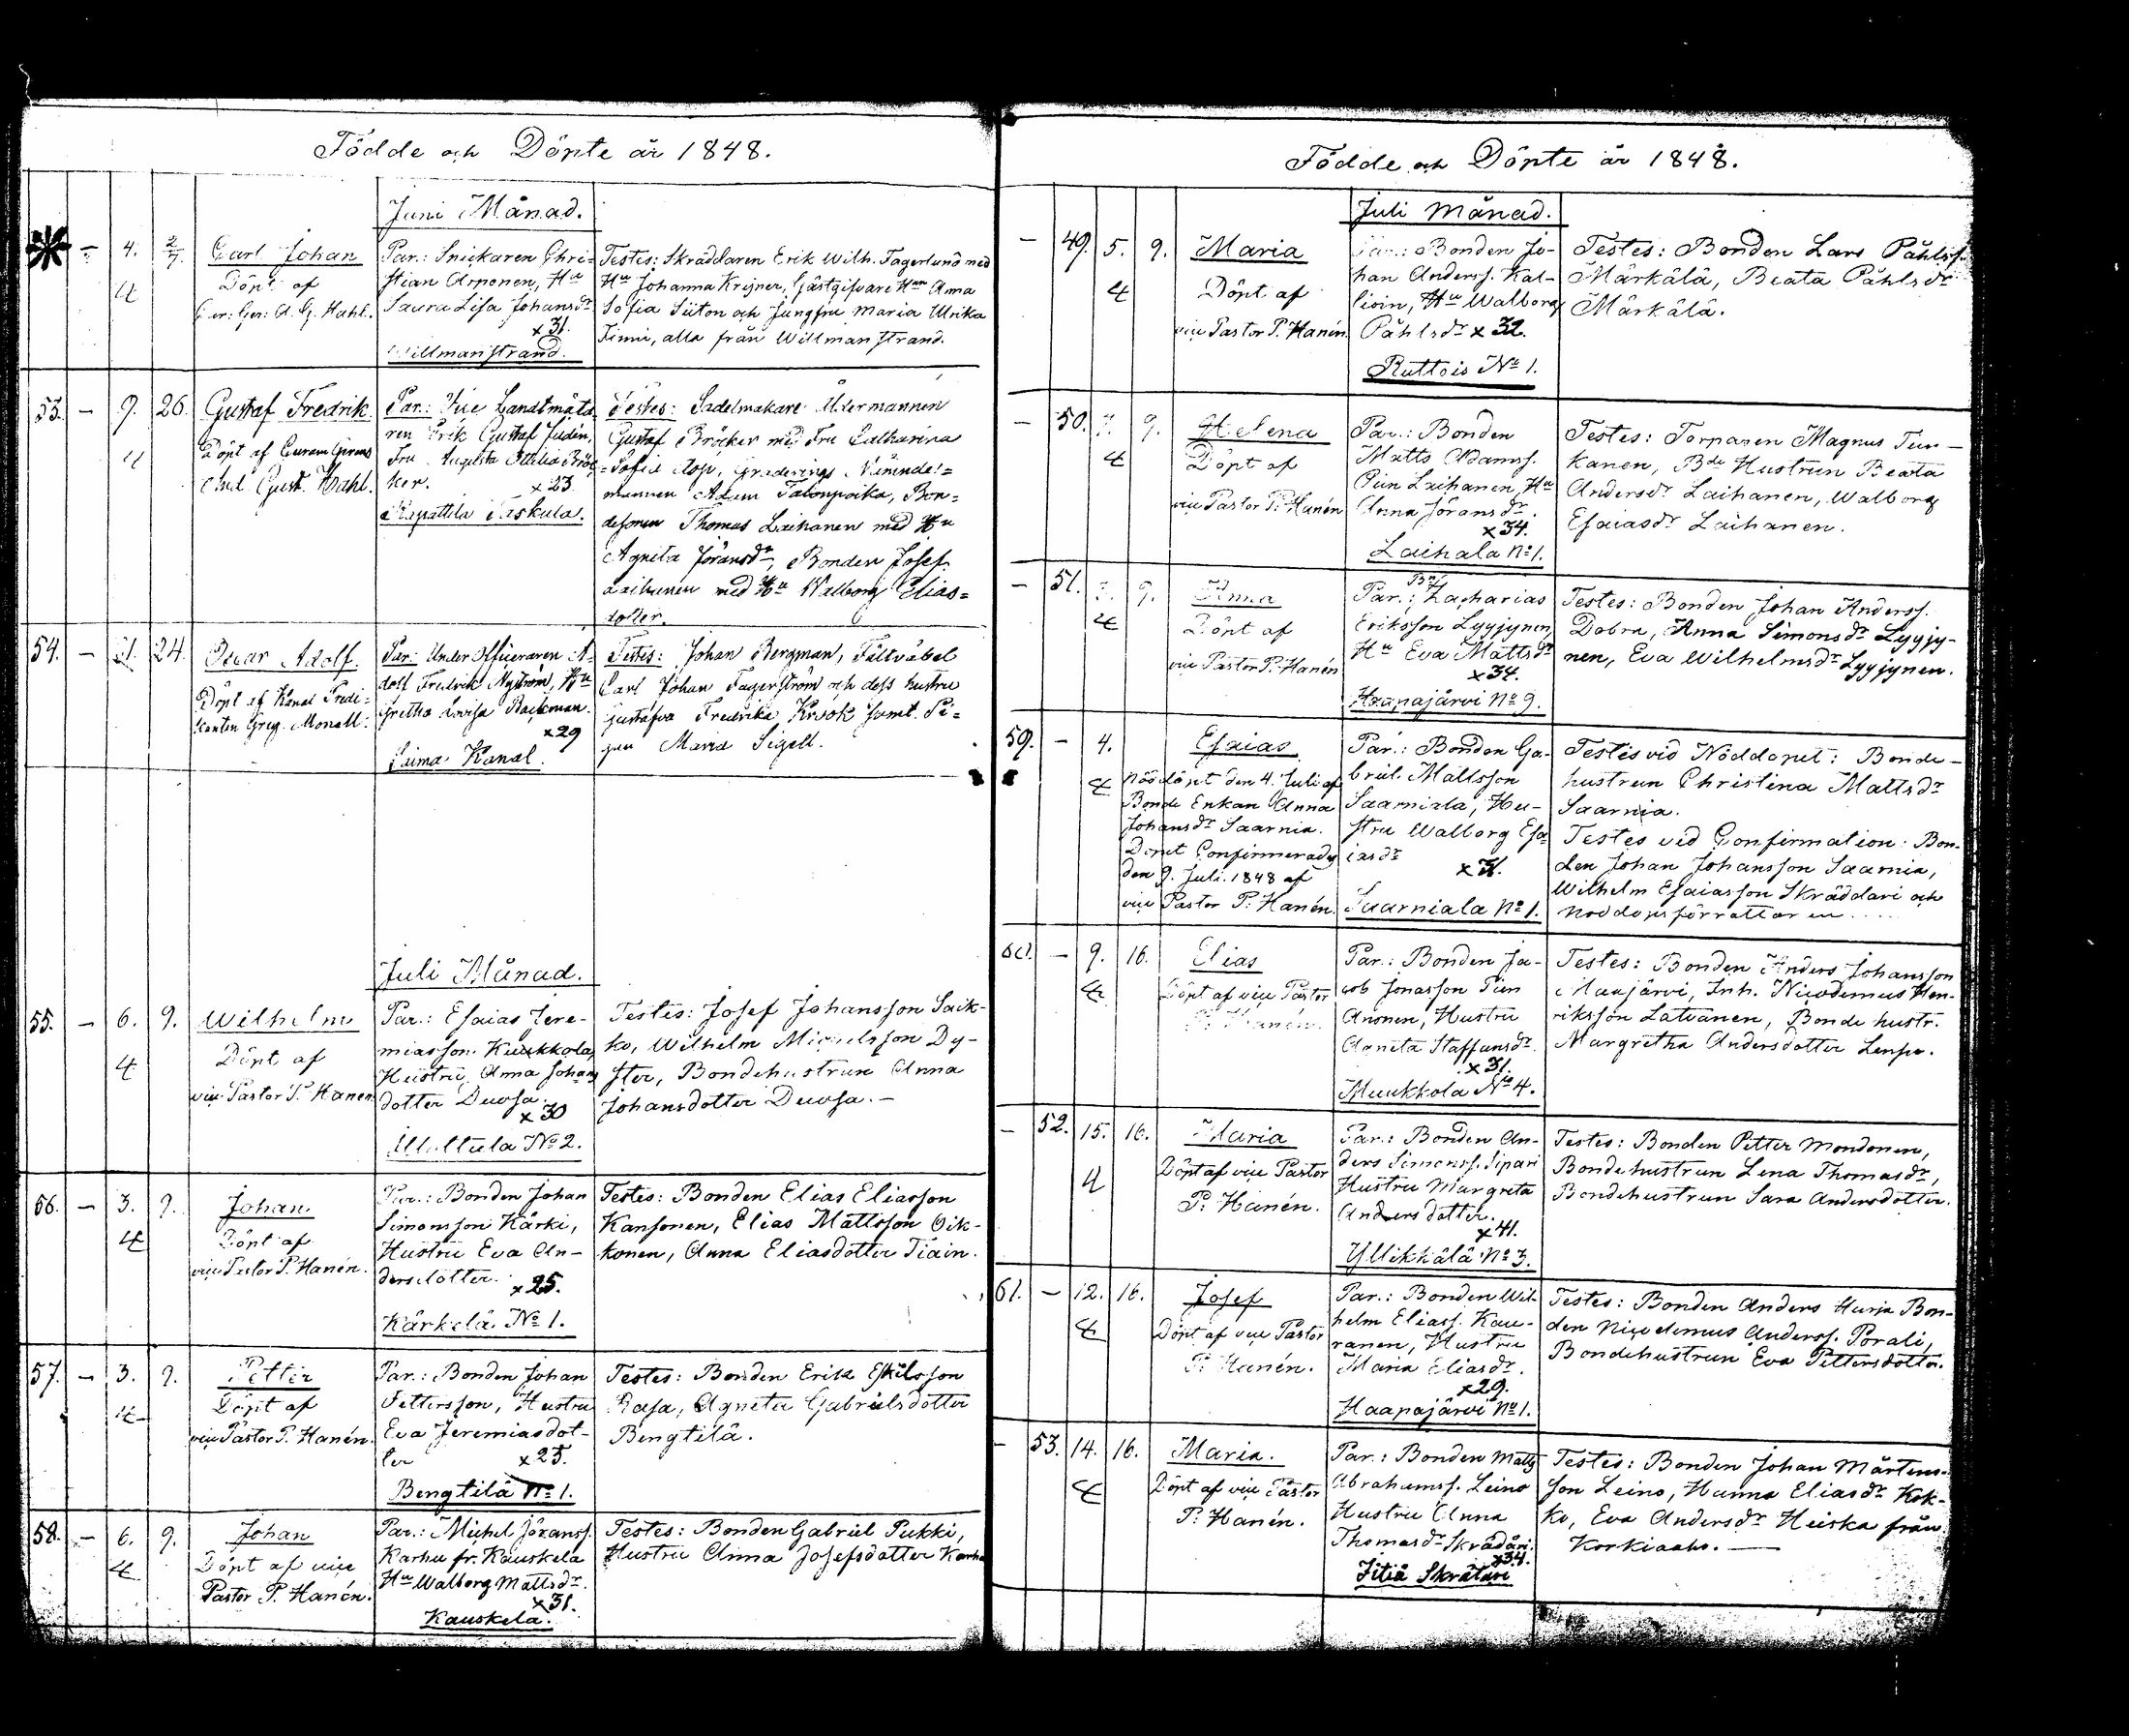 Födde och Döpte år 1848.
Juni Månad.
– 4. 2/7 Carl Johan
Döpt af
Par.: Snickaren Chri-
stian Arponen, Hu
Laura Lisa Johansdr
x 31.
Willmanstrand.
Testes: Skräddaren Erik Wilh. Fagerlund med
Hu Johanna Krijner, Gästgifvare Hun Anna
Sofia Siiton och Jungfru Maria Ulrika
Finni, alla från Willmanstrand.
53. – 9. 26. Gustaf Fredrik.
Döpt af
And. Gust. Wahl.
Par.: Vice Landtmäta-
ren Erik Gustaf Judin,
Fru Augusta Ottilia Bröc-
ker. x 23.
Testes: Sadelmakare Åldermannen
Gustaf Bröcker med Fru Catharina
Sofia Asp, Graderings Nämnde-
mannen Adam Talonpoika, Bon-
desonen Thomas Laihanen med Hu
Agneta Jöransdr, Bonden Josef
Laihanen med Hu Walborg Elias-
dotter.
54. – 21. 24. Oscar Adolf.
Döpt af Kanal Predi-
kanten Greg. Monell.
Par: Under Officeraren A-
dolf Fredrik Nyström, Hu
Gretha Lovisa Backman.
x 29
Saima Kanal.
Testes: Johan Bergman, Fältväbel
Carl Johan Fagerström och dess hustru
Gustafva Fredrika Krook samt Pi-
gan Maria Sigell.
Juli Månad.
55. – 6. 9. Wilhelm
4 Döpt af
vice Pastor P. Hanén
Par.: Esaias Jere-
miasson Kuukkola,
Hustru Anna Johans
dotter Duosa.
x 30
Testes: Josef Johansson Saik-
ko, Wilhelm Michelsson Dy-
ster, Bondehustrun Anna
Johansdotter Duosa. –
56. – 3. 9. Johan.
4 Döpt af
vice Pastor P. Hanén.
Par.: Bonden Johan
Simonsson Kärki,
Hustru Eva An-
dersdotter.
x 25.
Kärkelä No 1.
Testes: Bonden Elias Eliasson
Kansonen, Elias Mattsson Oik-
konen, Anna Eliasdotter Tiäin.
57. – 3. 9. Petter
4 Döpt af
vice Pastor P. Hanén.
Par.: Bonden Johan
Pettersson, Hustru
Eva Jeremiasdot-
ter x 25.
Bengtilä No 1.
Testes: Bonden Erik Eskilsson
Rasa, Agneta Gabrielsdotter
Bengtilä.
58. – 6. 9. Johan
4 Döpt af vice
Pastor P. Hanén.
Par.: Michel Göranss.
Karhu fr. Kauskela
Hu Walborg Mattsdr.
x 31.
Kauskela.
Testes: Bonden Gabriel Pukki,
Hustru Anna Josefsdotter Karhu
Födde och Döpte år 1848.
Juli Månad.
– 49. 5. 9. Maria
4 Döpt af
vice Pastor P. Hanén.
Par.: Bonden Jo-
han Anderss. Kal-
lioin, Hu Walborg
Påhlsdr x 32.
Ruttois No 1.
Testes: Bonden Lars Påhlss.
Märkälä, Beata Påhlsdr
Märkälä.
– 50. 9. Helena
4 Döpt af
vice Pastor P. Hanén
Par.: Bonden
Matts Adamss.
Piin Laihanen, Hu
Anna Jöransdr.
x 34.
Laihala No 1.
Testes: Torparen Magnus Tun-
kanen, Bde Hustrun Beata
Andersdr Laihanen, Walborg
Esaiasdr Laihanen.
– 51. 9. Anna
4 Döpt af
vice Pastor P. Hanén
Par.: Zacharias
Eriksson Lyyjynen,
Hu Eva Mattsdr
x 34.
Haapajärvi No 9.
Testes: Bonden Johan Anderss.
Dobra, Anna Simonsdr Lyyjy-
nen, Eva Wilhelmsdr Lyyjynen.
59. – 4. Esaias
4 Nöddöpt den 4. Juli af
Bonde Enkan Anna
Johansdr Saarnia.
Dopet Confirmerades
den 9. Juli 1848 af
vice Pastor P. Hanén.
Par.: Bonden Ga-
briel Mattsson
Saarniala, Hu-
stru Walborg Esa-
iasdr x 31.
Saarniala No 1.
Testes vid Nöddopet: Bonde-
hustrun Christina Mattsdr
Saarnia.
Testes vid Confirmation: Bon-
den Johan Johansson Saarnia,
Wilhelm Esaiasson Skräddari och
Nöddopsförrättaren
60. – 9. 16. Elias
4 Döpt af vice Pastor
P. Hanén.
Par.: Bonden Ja-
cob Jonasson Piin
Anonen, Hustru
Agneta Staffansdr.
x 31.
Muukkola No 4.
Testes: Bonden Anders Johansson
Haajärvi, Inh. Nicodemus Hen-
riksson Latvanen, Bonde hustr.
Margretha Andersdotter Lenpo.
– 52. 15. 16. Maria
4 Döpt af vice Pastor
P. Hanén.
Par.: Bonden An-
ders Simonss. Sipari
Hustru Margreta
Andersdotter.
x 41.
Yllikkälä No 3.
Testes: Bonden Petter Mondonen,
Bondehustrun Lena Thomasdr,
Bondehustrun Sara Andersdotter.
61. – 12. 16. Josef
4 Döpt af vice Pastor
P. Hanén.
Par.: Bonden Wil-
helm Eliass. Kau-
ranen, Hustru
Maria Eliasdr.
x 29.
Haapajärvi No 1.
Testes: Bonden Anders Hurja Bon-
den Nicodemus Anderss. Porali,
Bondehustrun Eva Pettersdotter.
– 53. 14. 16. Maria.
4 Döpt af vice Pastor
P. Hanén.
Par.: Bonden Matts
Abrahamss. Leino
Hustru Anna
Thomasdr Skrädäri.
x 34.
Iitiä Skrätäri
Testes: Bonden Johan Mårtens-
son Leino, Hanna Eliasdr Kok-
ko, Eva Andersdr Heiska från
Korkiaaho. –